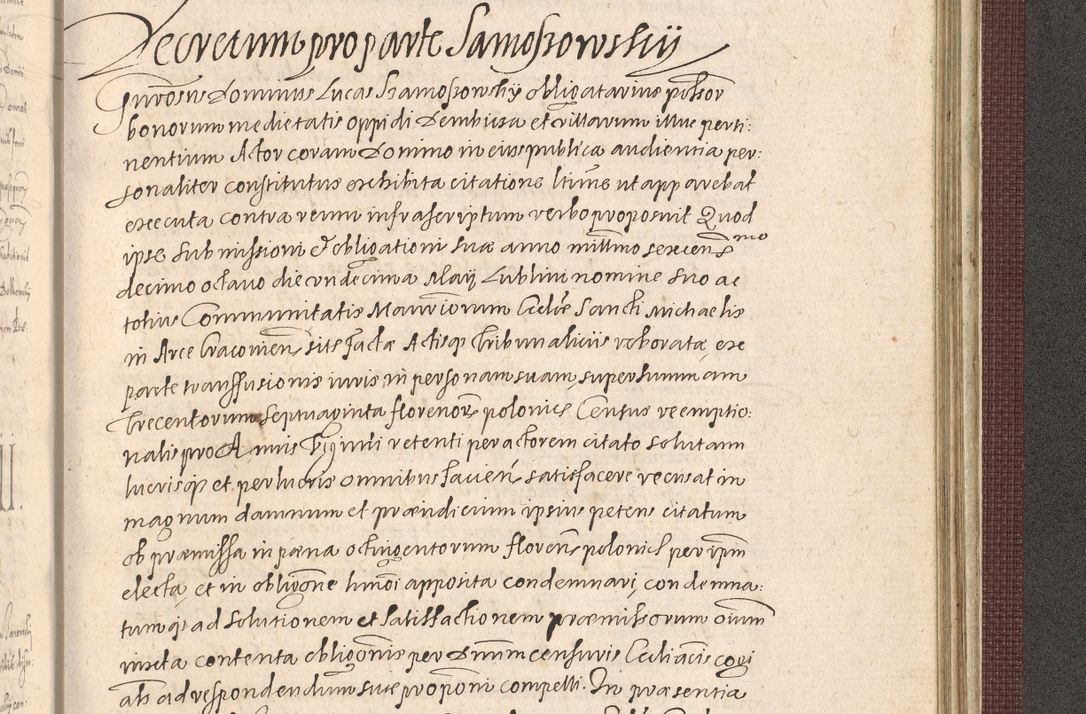 Decretum pro parte Samoßowskij
Gnrosus Dominus Lucas Szamoßowsky obligatarius possor
bonorum medietatis oppidi Dembicza et villarum illuc perti:
nentium Actor coram Domino in eius publica audientia per:
sonaliter constitutus exhibita citatione ltime ut apparebat
executa contra reum infrascriptum verbo proposuit Quod
ipse submissioni et obligationi suæ anno millmo sexcens mo
decimo octavo die undecima Maij Lublini nomine suo ac
totius Communitatis Mansionariorum Ecclie Sancti Michaelis
in Arce Cracovien sitæ factæ Actisq Tribunalicijs roboratæ, ex
parte transfusionis iuris in personam suam, super summam
Trecentorum Septuaginta florenor polonic Census reemptio:
nalis pro Annuis viginti retenti per actorem citato solutam
lucrisq et perlucris omnibus facien satisfacere recusat in
magnum damnum et præiudicium ipsius peten citatum
ob præmissa in pæna octingentorum floren polonic per ipm
electa, et in obligone hmoi apposita condemnari, condemna:
tumq ad solutionem et satisfactionem præmissorum oium
iuxta contenta obligonis per Dnum censuris Eccliacis cogi
als ad respondendum suæ proponi compelli. In præsentia